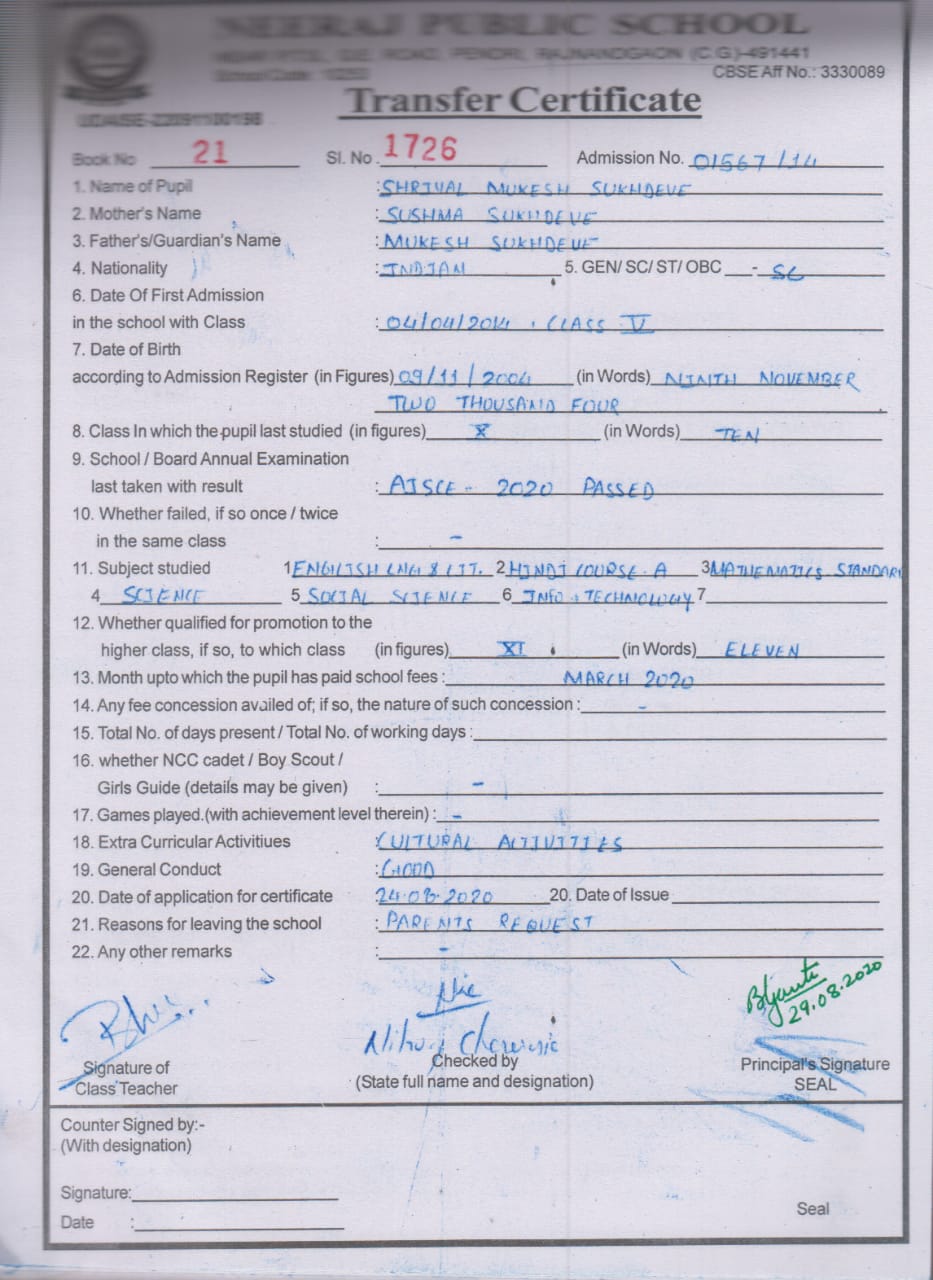 NEERAJ PUBLIC SCHOOL
ROAD, PENDRI, RAJNANDGAON (C.G.)-491441
School Code
CBSE Aff No.: 3330089
Transfer Certificate
Book No 21 Sl. No. 1726 Admission No. 01567/14
1. Name of Pupil : SHRIYAL MUKESH SUKHDEVE
2. Mother's Name : SUSHMA SUKHDEVE
3. Father's/Guardian's Name : MUKESH SUKHDEVE
4. Nationality : INDIAN 5. GEN/ SC/ ST/ OBC - SC
6. Date Of First Admission
in the school with Class : 04/04/2014 , CLASS V
7. Date of Birth
according to Admission Register (in Figures) 09/11/2004 (in Words) NINTH NOVEMBER
TWO THOUSAND FOUR
8. Class In which the pupil last studied (in figures) X (in Words) TEN
9. School / Board Annual Examination
last taken with result : AISCE - 2020 PASSED
10. Whether failed, if so once / twice
in the same class : -
11. Subject studied 1 ENGLISH LNG & LIT. 2 HINDI COURSE-A 3 MATHEMATICS STANDARD
4 SCIENCE 5 SOCIAL SCIENCE 6 INFO. TECHNOLOGY 7
12. Whether qualified for promotion to the
higher class, if so, to which class (in figures) XI (in Words) ELEVEN
13. Month upto which the pupil has paid school fees : MARCH 2020
14. Any fee concession availed of; if so, the nature of such concession : -
15. Total No. of days present / Total No. of working days :
16. whether NCC cadet / Boy Scout /
Girls Guide (details may be given) : -
17. Games played.(with achievement level therein) : -
18. Extra Curricular Activitiues : CULTURAL ACTIVITIES
19. General Conduct : GOOD
20. Date of application for certificate : 24-08-2020 20. Date of Issue
21. Reasons for leaving the school : PARENTS REQUEST
22. Any other remarks : -
29.08.2020
Signature of
Class Teacher
Checked by
(State full name and designation)
Principal's Signature
SEAL
Counter Signed by:-
(With designation)
Signature:
Seal
Date :